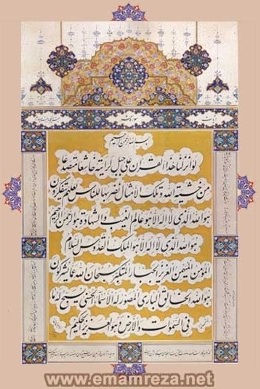 بسم الله الرحمن الرحيم
لو انزلنا هذا القرآن على جبل لرايته خاشعا متصدعا
من خشية الله وتلك الامثال نضربها للناس لعلهم يتفكرون
هو الله الذى لا اله الا هو عالم الغيب والشهادة هو الرحمن الرحيم
هو الله الذى لا اله الا هو الملك القدوس السلام
المؤمن المهيمن العزيز الجبار المتكبر سبحان الله عما يشركون
هو الله الخالق البارئ المصور له الاسماء الحسنى يسبح له ما
فى السموات والارض وهو العزيز الحكيم
www.emamreza.net